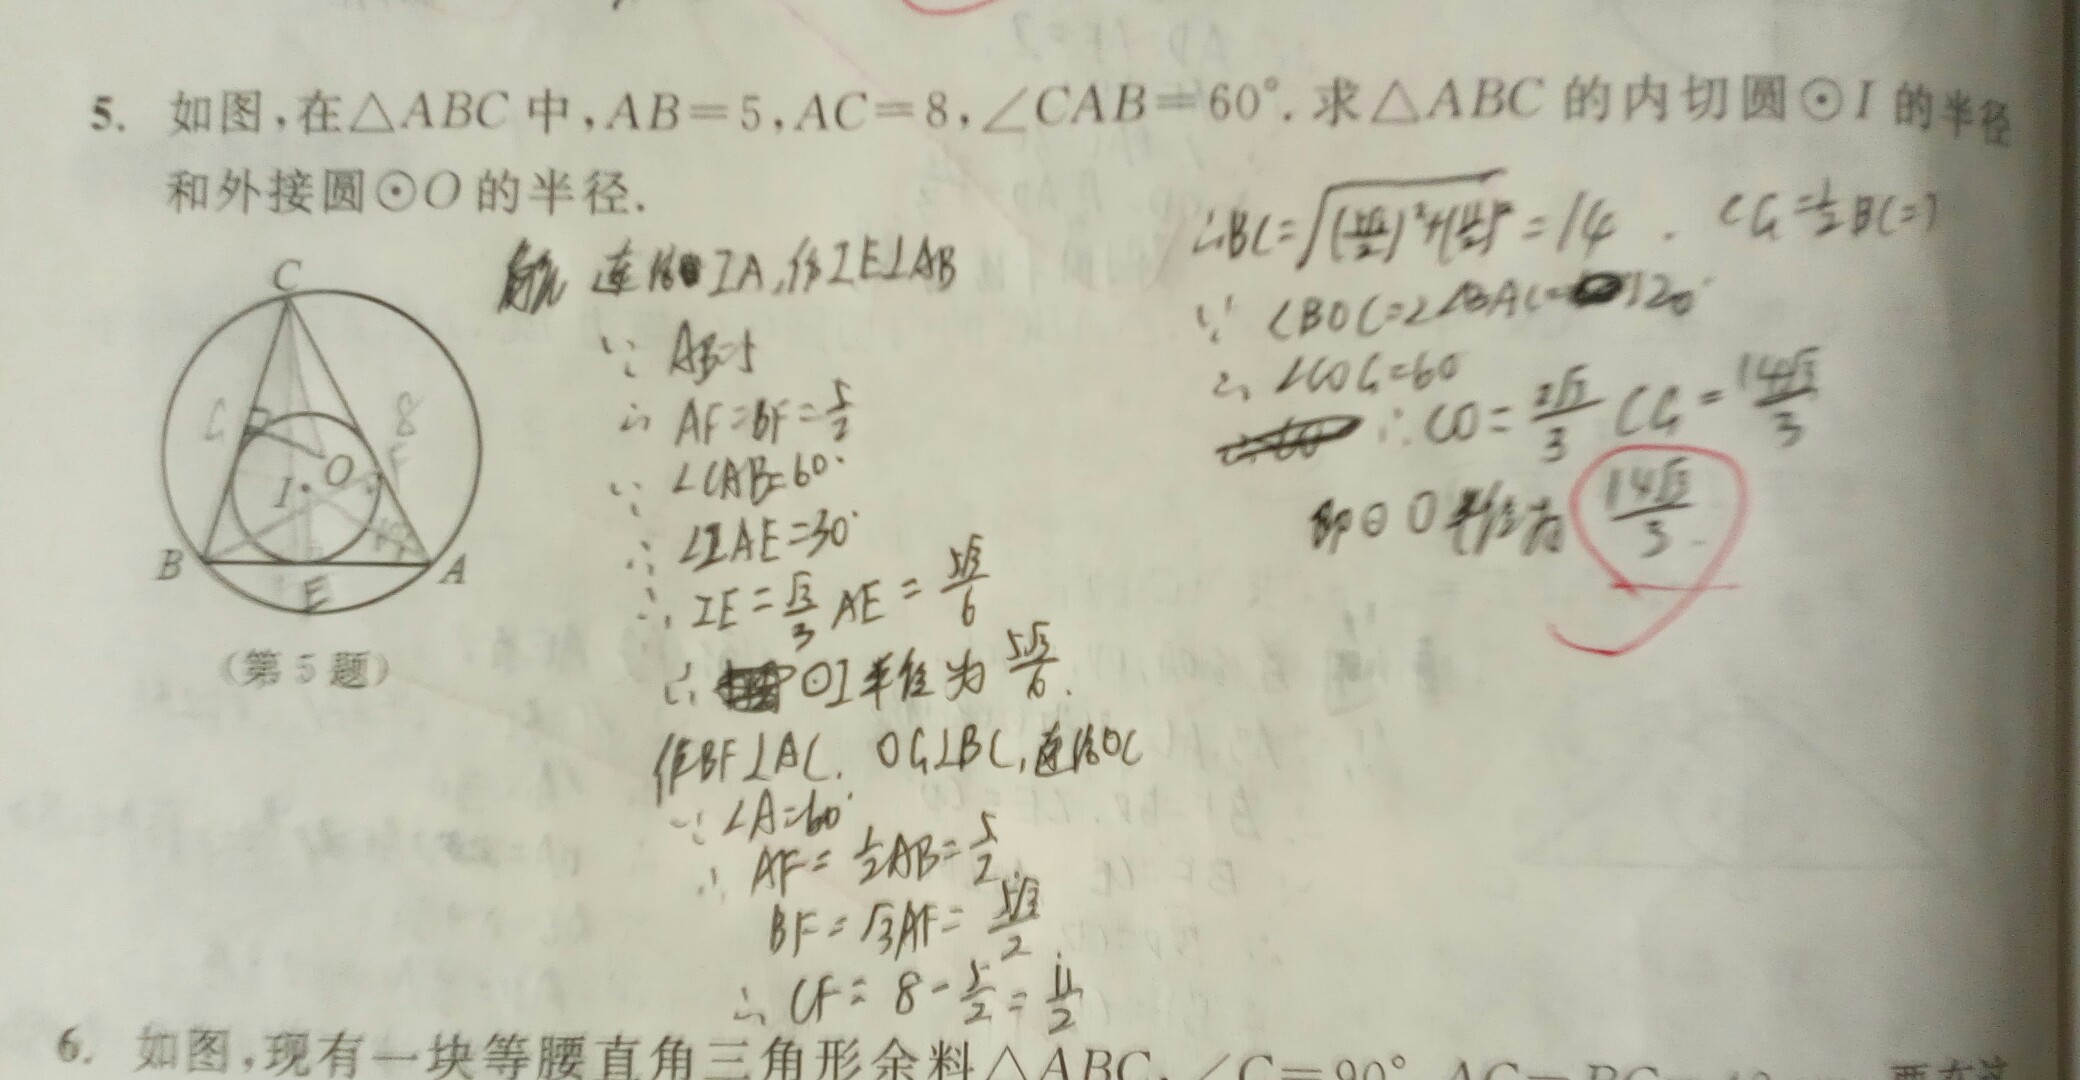 5. 如图,在△ABC 中,AB=5,AC=8,∠CAB=60°.求△ABC 的内切圆⊙I 的半径
和外接圆⊙O 的半径.
C
G
8
F
I
O
B
A
E
(第 5 题)
连结IA,作IE⊥AB
∵ AB=5
∴ AF=BF=5/2
∵ ∠CAB=60°
∴ ∠IAE=30°
∴ IE=√3/3 AE=5√3/6
∴ ⊙I半径为 5√3/6.
作BF⊥AC, OG⊥BC,连结OC
∵ ∠A=60°
∴ AF=1/2AB=5/2.
BF=√3AF=5√3/2
∴ CF=8-5/2=11/2
∴BC=√(5√3/2)²+(11/2)²=14. CG=1/2BC=7
∵ ∠BOC=2∠BAC=120°
∴ ∠COG=60
∴CO=2√3/3 CG=14√3/3
即⊙O半径为 14√3/3.
6. 如图,现有一块等腰直角三角形余料△ABC,∠C=90°